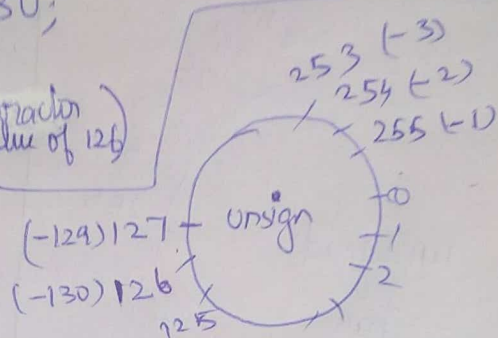 30;
of 126)
253 (-3)
254 (-2)
255 (-1)
0
1
2
unsign
(-129) 127
(-130) 126
125